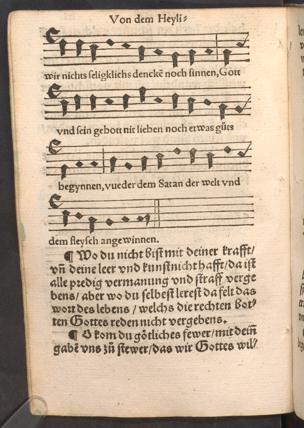 Von dem Heyli⸗
wir nichts seligklichs denckẽ noch sinnen, Gott
vnd sein gebott nit lieben noch etwas gůts
begynnen, vueder dem Satan der welt vnd
dem fleysch angewinnen.
¶ Wo du nicht bist mit deiner krafft/
vñ deine leer vnd kunst nicht hafft/ da ist
alle predig vermanung vnd straff verge
bens/ aber wo du selbest lerest da felt das
wort des lebens/ welchs die rechten bot⸗
ten Gottes reden nicht vergebens.
¶ O kom du götliches fewer/ mit deiñ
gabẽ vns zů stewer/ das wir Gottes wil⸗